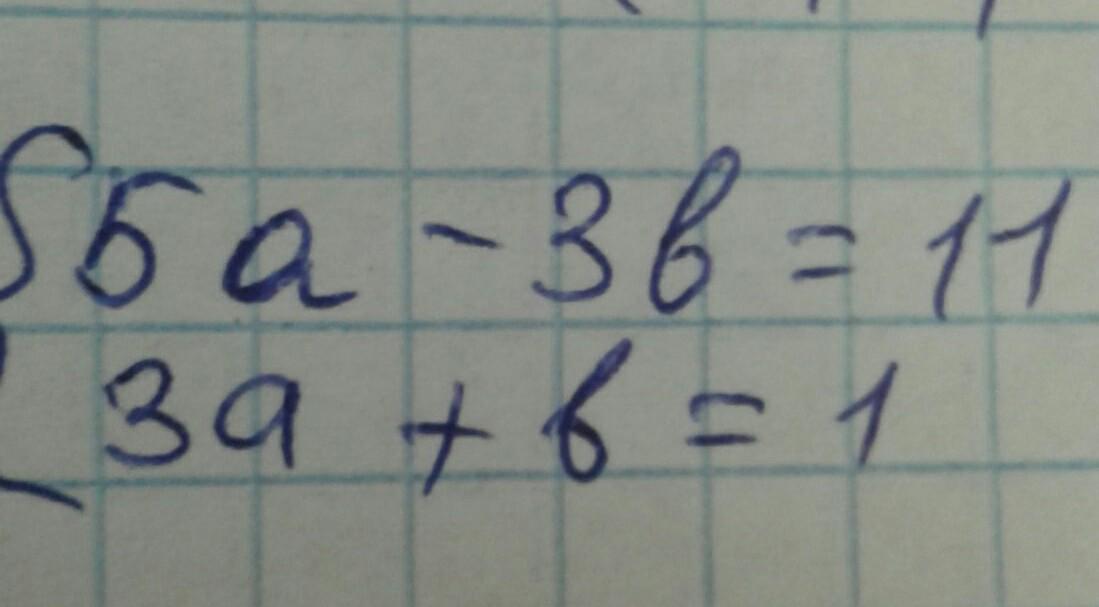 5a - 3b = 11
3a + b = 1